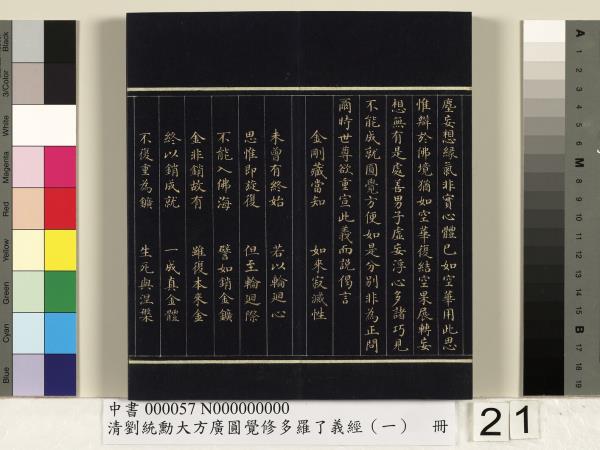 塵妄想緣氣非實心體已如空華用此思
惟辯於佛境猶如空華復結空果展轉妄
想無有是處善男子虛妄浮心多諸巧見
不能成就圓覺方便如是分別非為正問
爾時世尊欲重宣此義而說偈言
金剛藏當知 如來寂滅性
未曾有終始 若以輪迴心
思惟即旋復 但至輪迴際
不能入佛海 譬如銷金鑛
金非銷故有 雖復本來金
終以銷成就 一成真金體
不復重為鑛 生死與涅槃
中書 000057 N000000000
清劉統勳大方廣圓覺修多羅了義經（一） 冊
21
Black
3/Color
White
Magenta
Red
Yellow
Green
Cyan
Blue
A
1
2
3
4
5
6
M
8
9
10
11
12
13
14
15
B
17
18
19